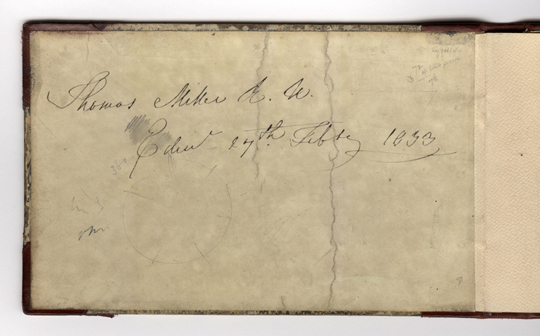 Thomas Miller A. W.
Edinr 27th Feby 1833